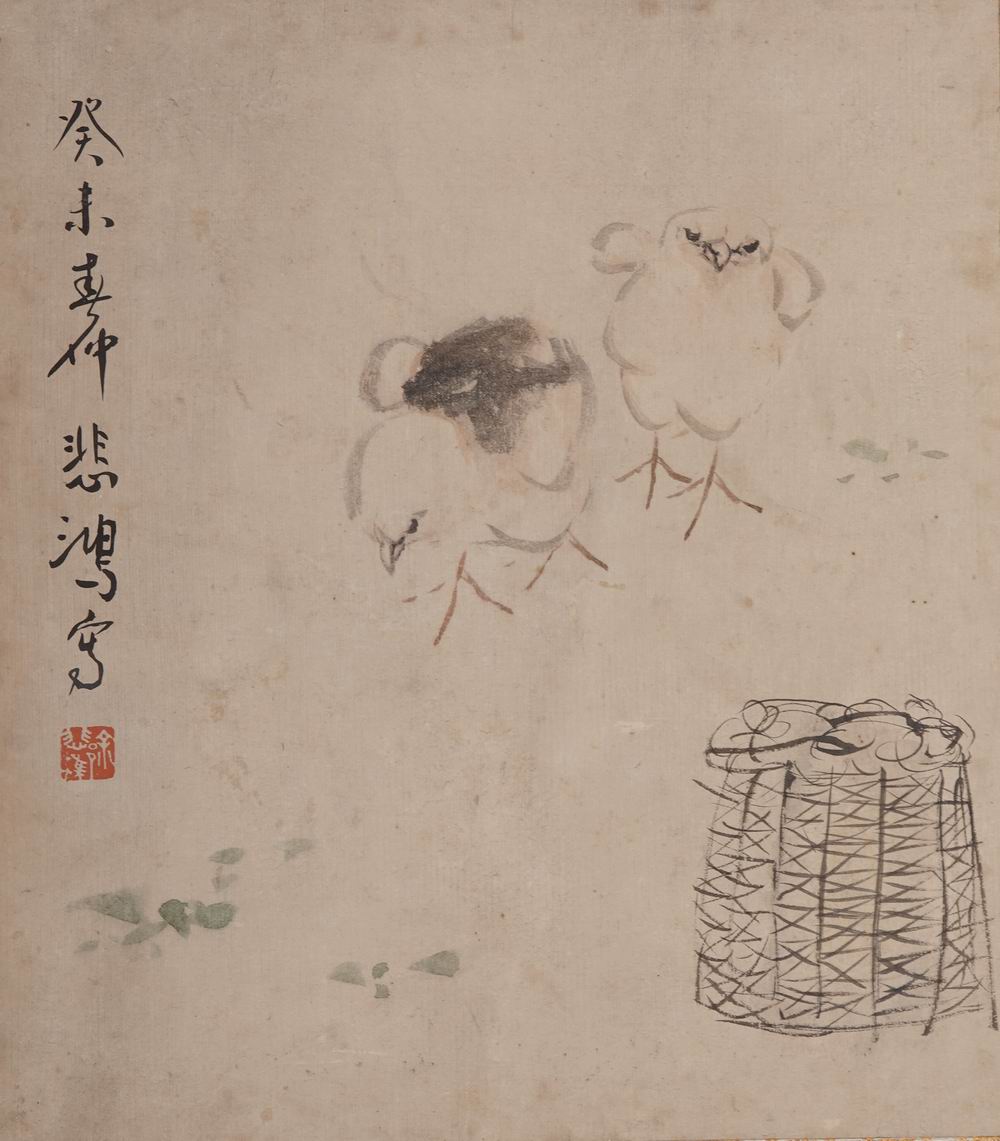 癸未春仲 悲鴻寫
徐悲鴻